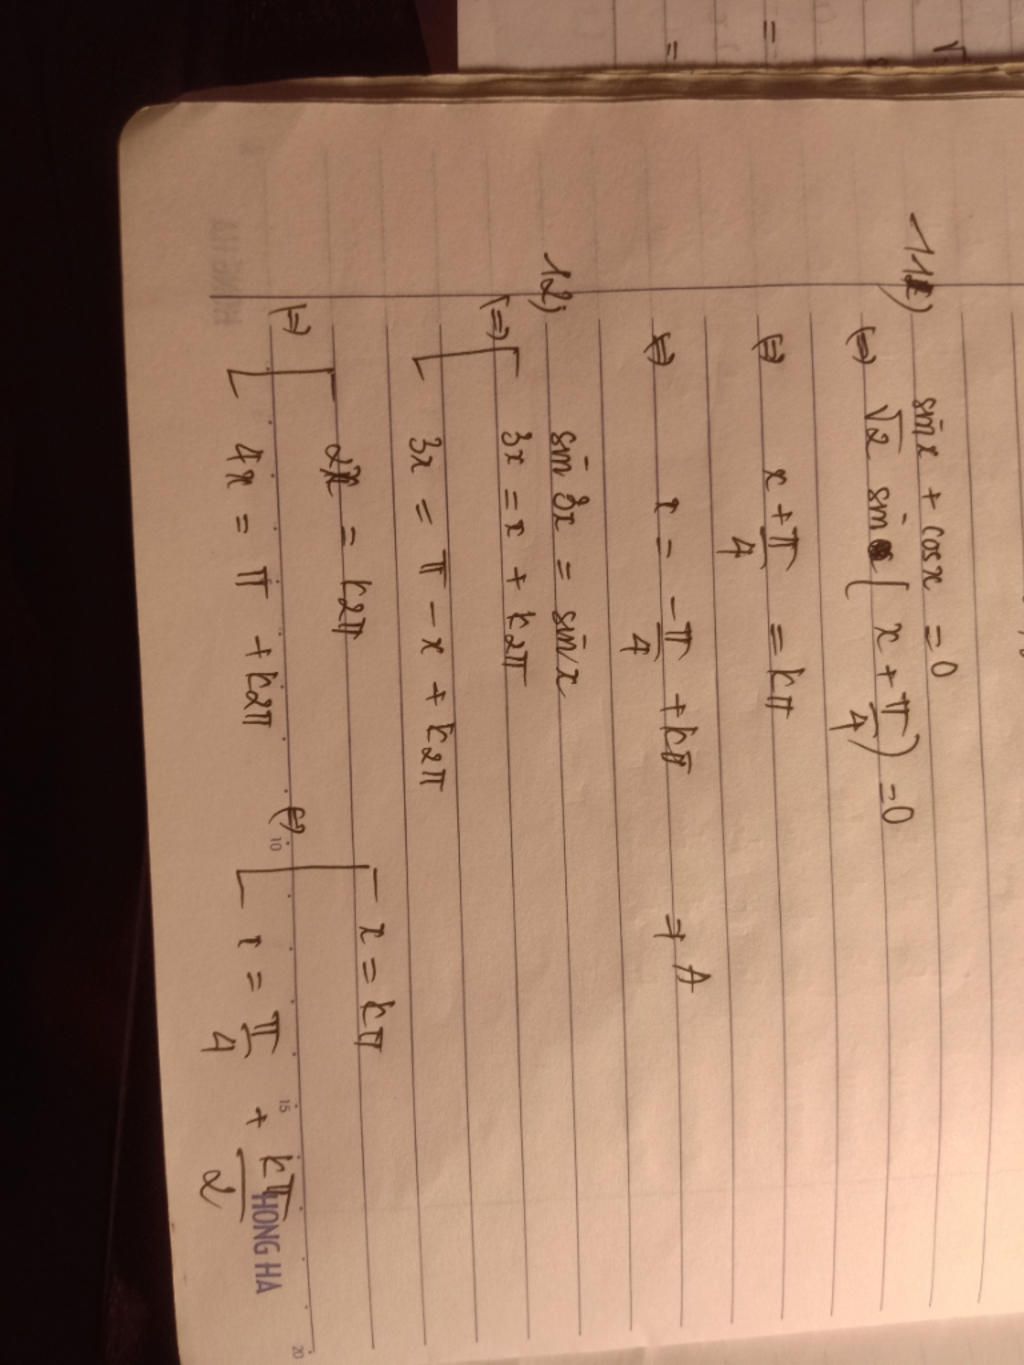 11) sin x + cos x = 0
(=) √2 sin ( x + π/4 ) = 0
(=) x + π/4 = kπ
(=) x = -π/4 + kπ ⇒ A
12) sin 3x = sin x
(=) [ 3x = x + k2π
3x = π - x + k2π
(=) [ 2x = k2π (=) [ x = kπ
4x = π + k2π x = π/4 + kπ/2
10 15 20
HONG HA